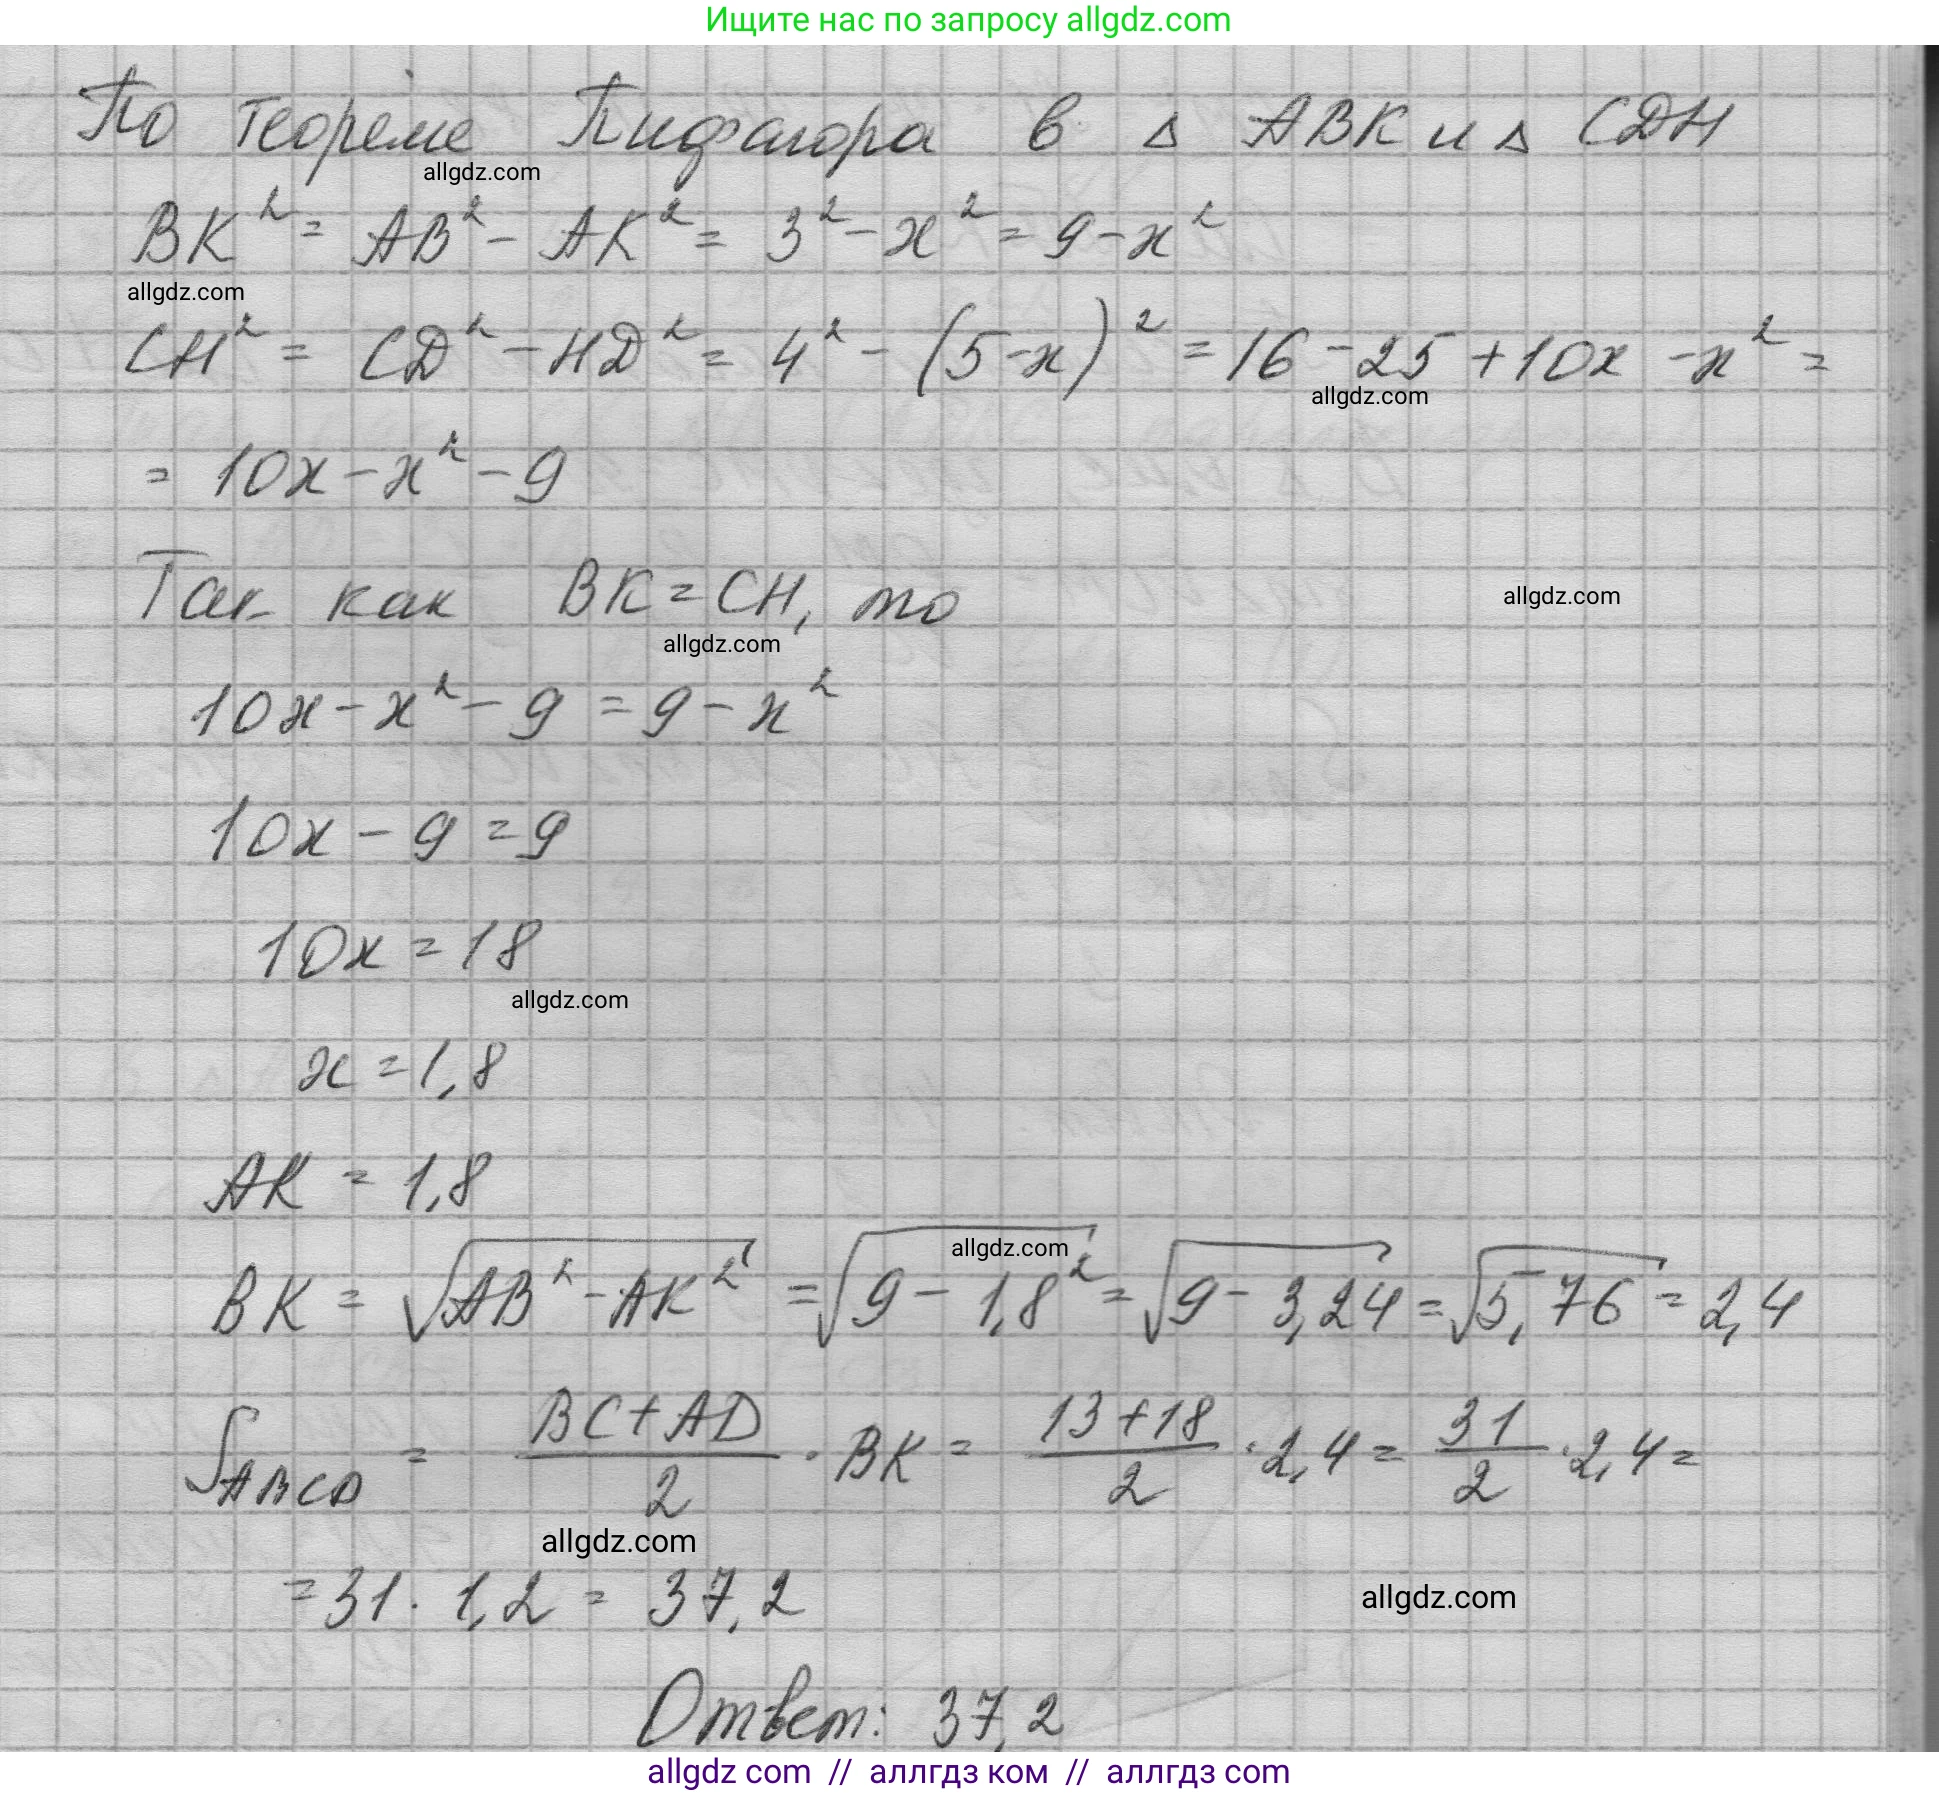 Ищите нас по запросу allgdz.com
По теореме Пифагора в △ ABK и △ CDH
allgdz.com
BK² = AB² - AK² = 3² - x² = 9 - x²
allgdz.com
CH² = CD² - HD² = 4² - (5-x)² = 16 - 25 + 10x - x² =
allgdz.com
= 10x - x² - 9
Так как BK = CH, то
allgdz.com
allgdz.com
10x - x² - 9 = 9 - x²
10x - 9 = 9
10x = 18
allgdz.com
x = 1,8
AK = 1,8
allgdz.com
BK = √(AB² - AK²) = √(9 - 1,8²) = √(9 - 3,24) = √5,76 = 2,4
S_ABCD = (BC+AD)/2 · BK = (13+18)/2 · 2,4 = 31/2 · 2,4 =
allgdz.com
= 31 · 1,2 = 37,2
allgdz.com
Ответ: 37,2
allgdz com // аллгдз ком // аллгдз com